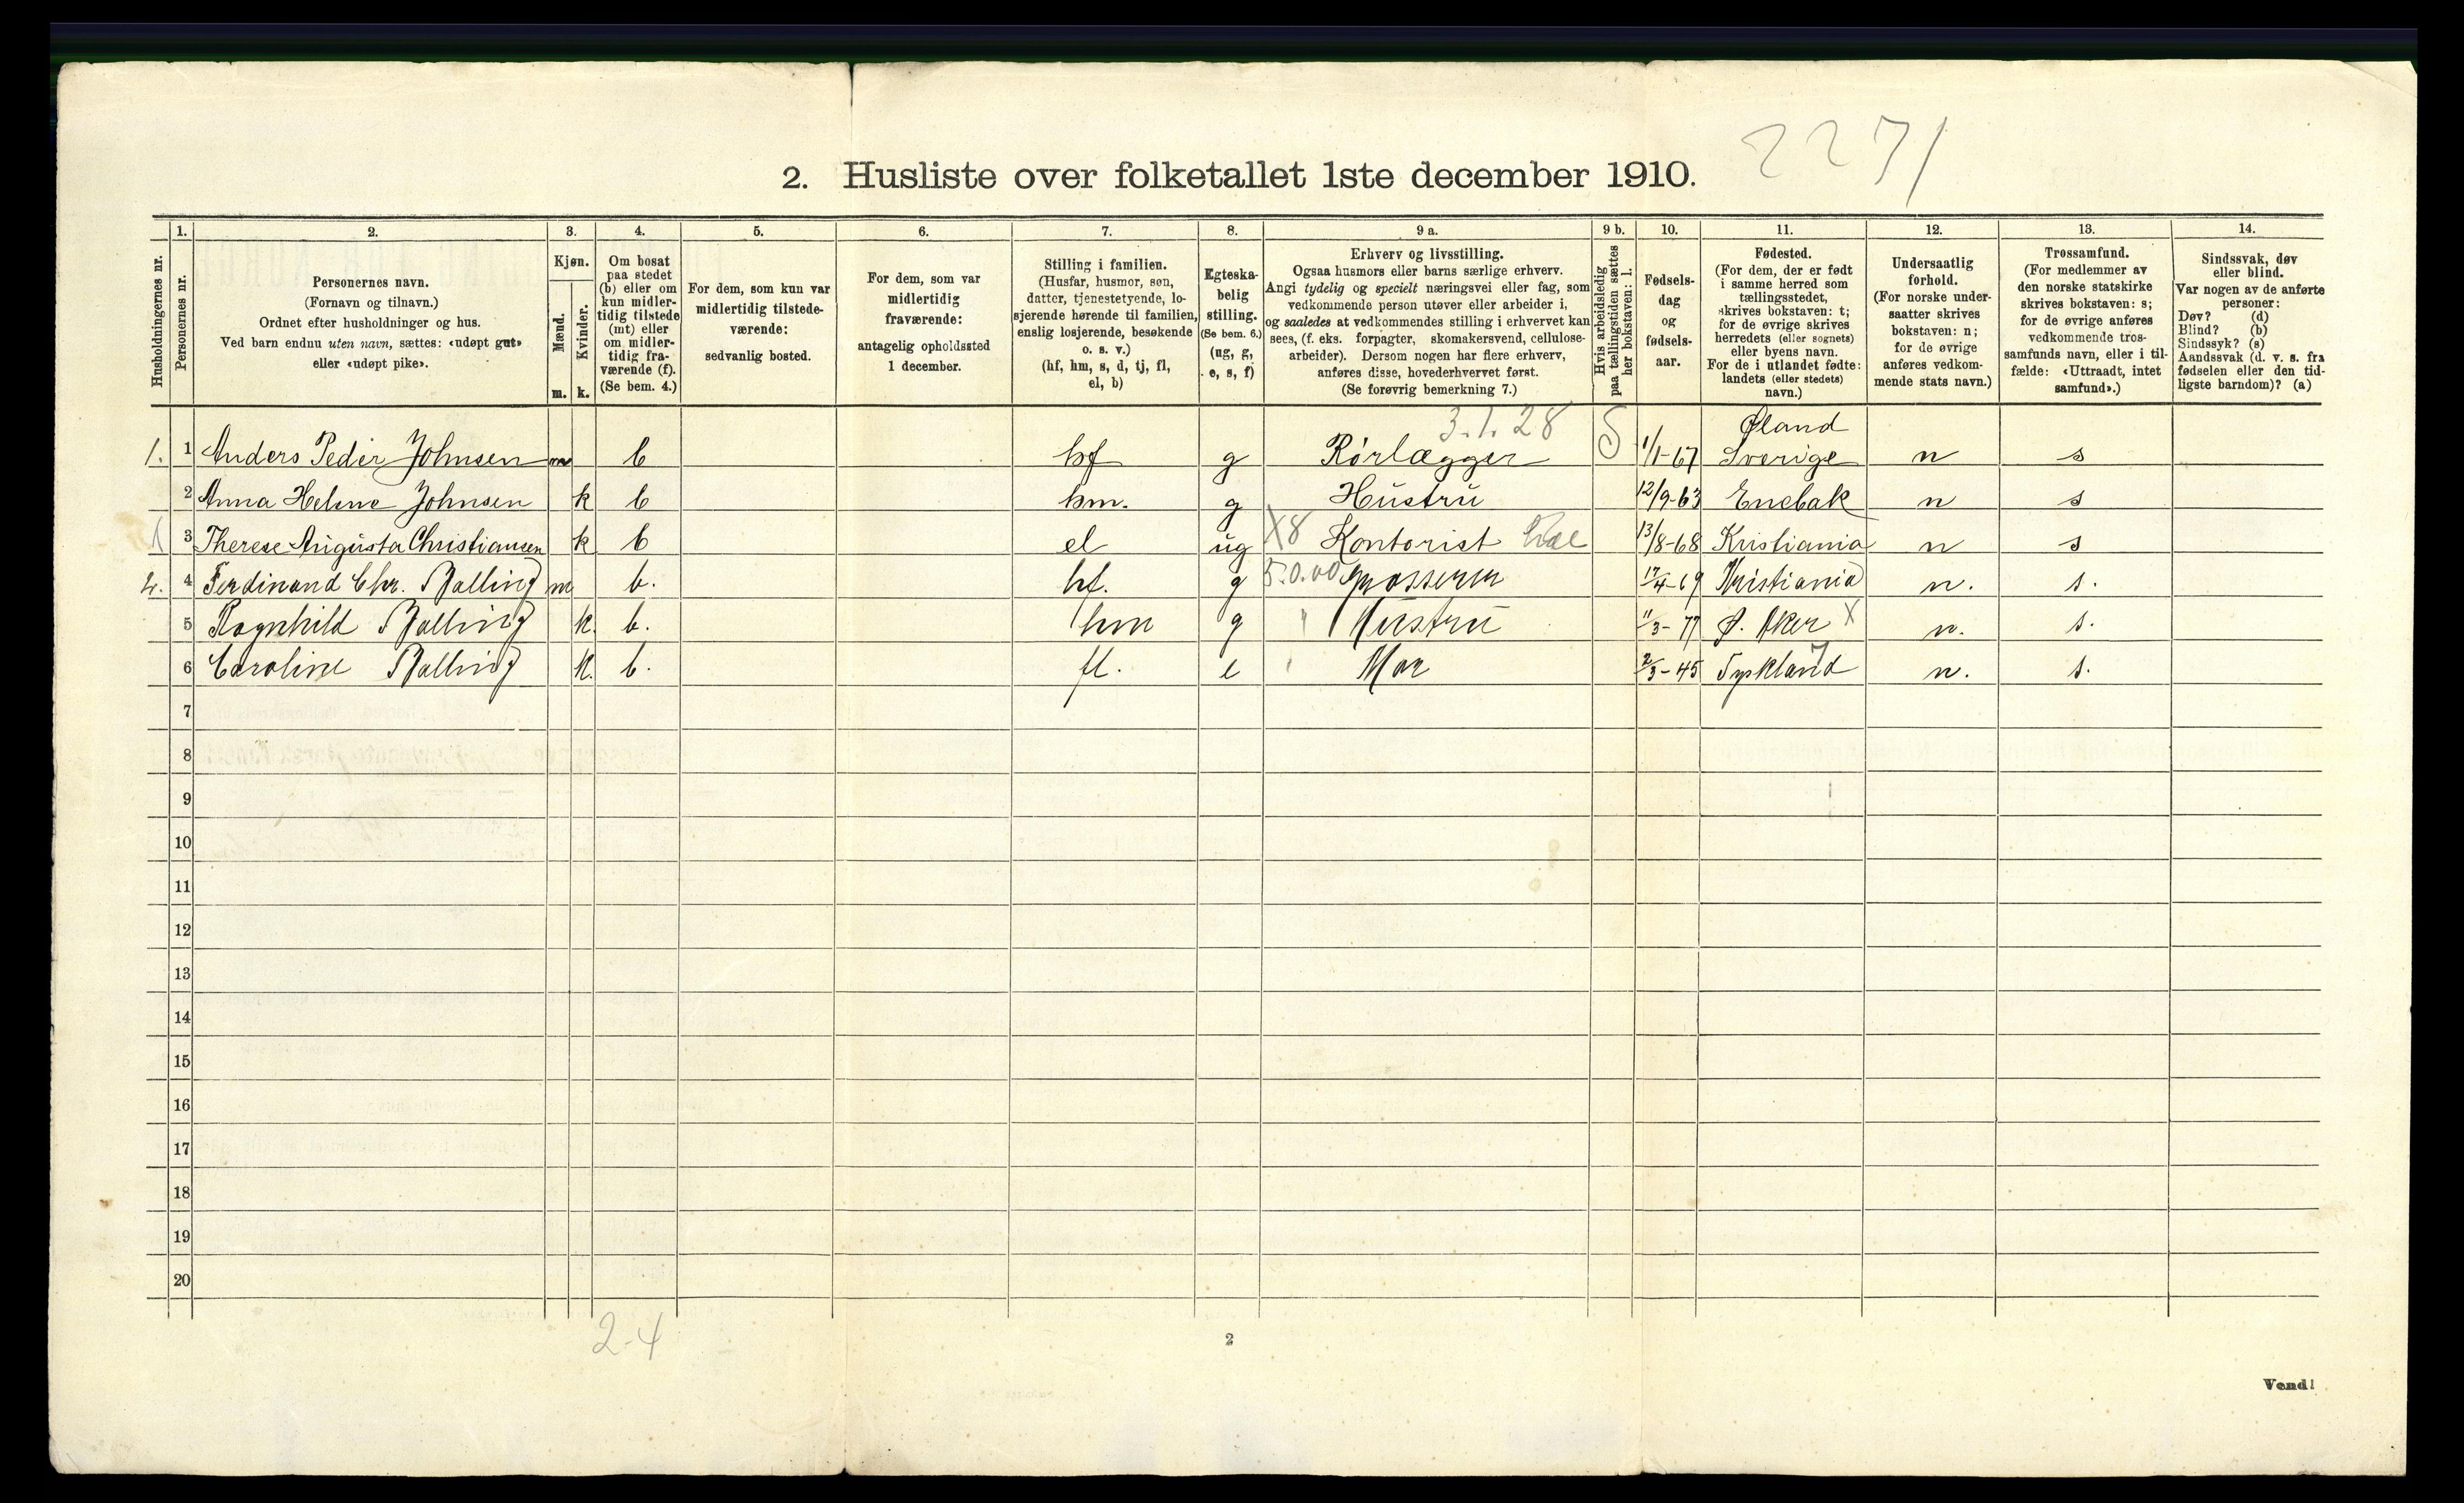 2271
2. Husliste over folketallet 1ste december 1910.
Husholdningernes nr.
1.
Personernes nr.
2.
Personernes navn.
(Fornavn og tilnavn.)
Ordnet efter husholdninger og hus.
Ved barn endnu uten navn, sættes: «udøpt gut»
eller «udøpt pike».
3.
Kjøn.
Mænd.
m.
Kvinder.
k.
4.
Om bosat
paa stedet
(b) eller om
kun midler-
tidig tilstede
(mt) eller
om midler-
tidig fra-
værende (f).
(Se bem. 4.)
5.
For dem, som kun var
midlertidig tilstede-
værende:
sedvanlig bosted.
6.
For dem, som var
midlertidig
fraværende:
antagelig opholdssted
1 december.
7.
Stilling i familien.
(Husfar, husmor, søn,
datter, tjenestetyende, lo-
sjerende hørende til familien,
enslig losjerende, besøkende
o. s. v.)
(hf, hm, s, d, tj, fl,
el, b)
8.
Egteska-
belig
stilling.
(Se bem. 6.)
(ug, g,
e, s, f)
9 a.
Erhverv og livsstilling.
Ogsaa husmors eller barns særlige erhverv.
Angi tydelig og specielt næringsvei eller fag, som
vedkommende person utøver eller arbeider i,
og saaledes at vedkommendes stilling i erhvervet kan
sees, (f. eks. forpagter, skomakersvend, cellulose-
arbeider). Dersom nogen har flere erhverv,
anføres disse, hovederhvervet først.
(Se forøvrig bemerkning 7.)
9 b.
Hvis arbeidsledig
paa tællingstiden sættes
her bokstaven: l.
10.
Fødsels-
dag
og
fødsels-
aar.
11.
Fødested.
(For dem, der er født
i samme herred som
tællingsstedet,
skrives bokstaven: t;
for de øvrige skrives
herredets (eller sognets)
eller byens navn.
For de i utlandet fødte:
landets (eller stedets)
navn.)
12.
Undersaatlig
forhold.
(For norske under-
saatter skrives
bokstaven: n;
for de øvrige
anføres vedkom-
mende stats navn.)
13.
Trossamfund.
(For medlemmer av
den norske statskirke
skrives bokstaven: s;
for de øvrige anføres
vedkommende tros-
samfunds navn, eller i til-
fælde: «Uttraadt, intet
samfund».)
14.
Sindssvak, døv
eller blind.
Var nogen av de anførte
personer:
Døv? (d)
Blind? (b)
Sindssyk? (s)
Aandssvak (d. v. s. fra
fødselen eller den tid-
ligste barndom)? (a)
3.1.28 S Øland
1. 1 Anders Peder Johnsen m b hf g Rørlægger 1/1-67 Sverige n s
2 Anna Helene Johnsen k b hm. g Hustru 12/9-63 Enebak n s
3 Therese Augusta Christiansen k b el ug X8 Kontorist 13/8-68 Kristiania n s
2. 4 Ferdinand Chr. Balling m b. hf. g 5.0.00 Grosserer 17/4-69 Kristiania n. s.
5 Ragnhild Balling k. b. hm g " Hustru 11/3-77 Ø. Aker X n. s.
6 Caroline Balling k. b. fl. e " Mor 2/3-45 Tyskland n. s.
7
8
9
10
11
12
13
14
15
16
17
18
19
20
2-4
2
Vend!